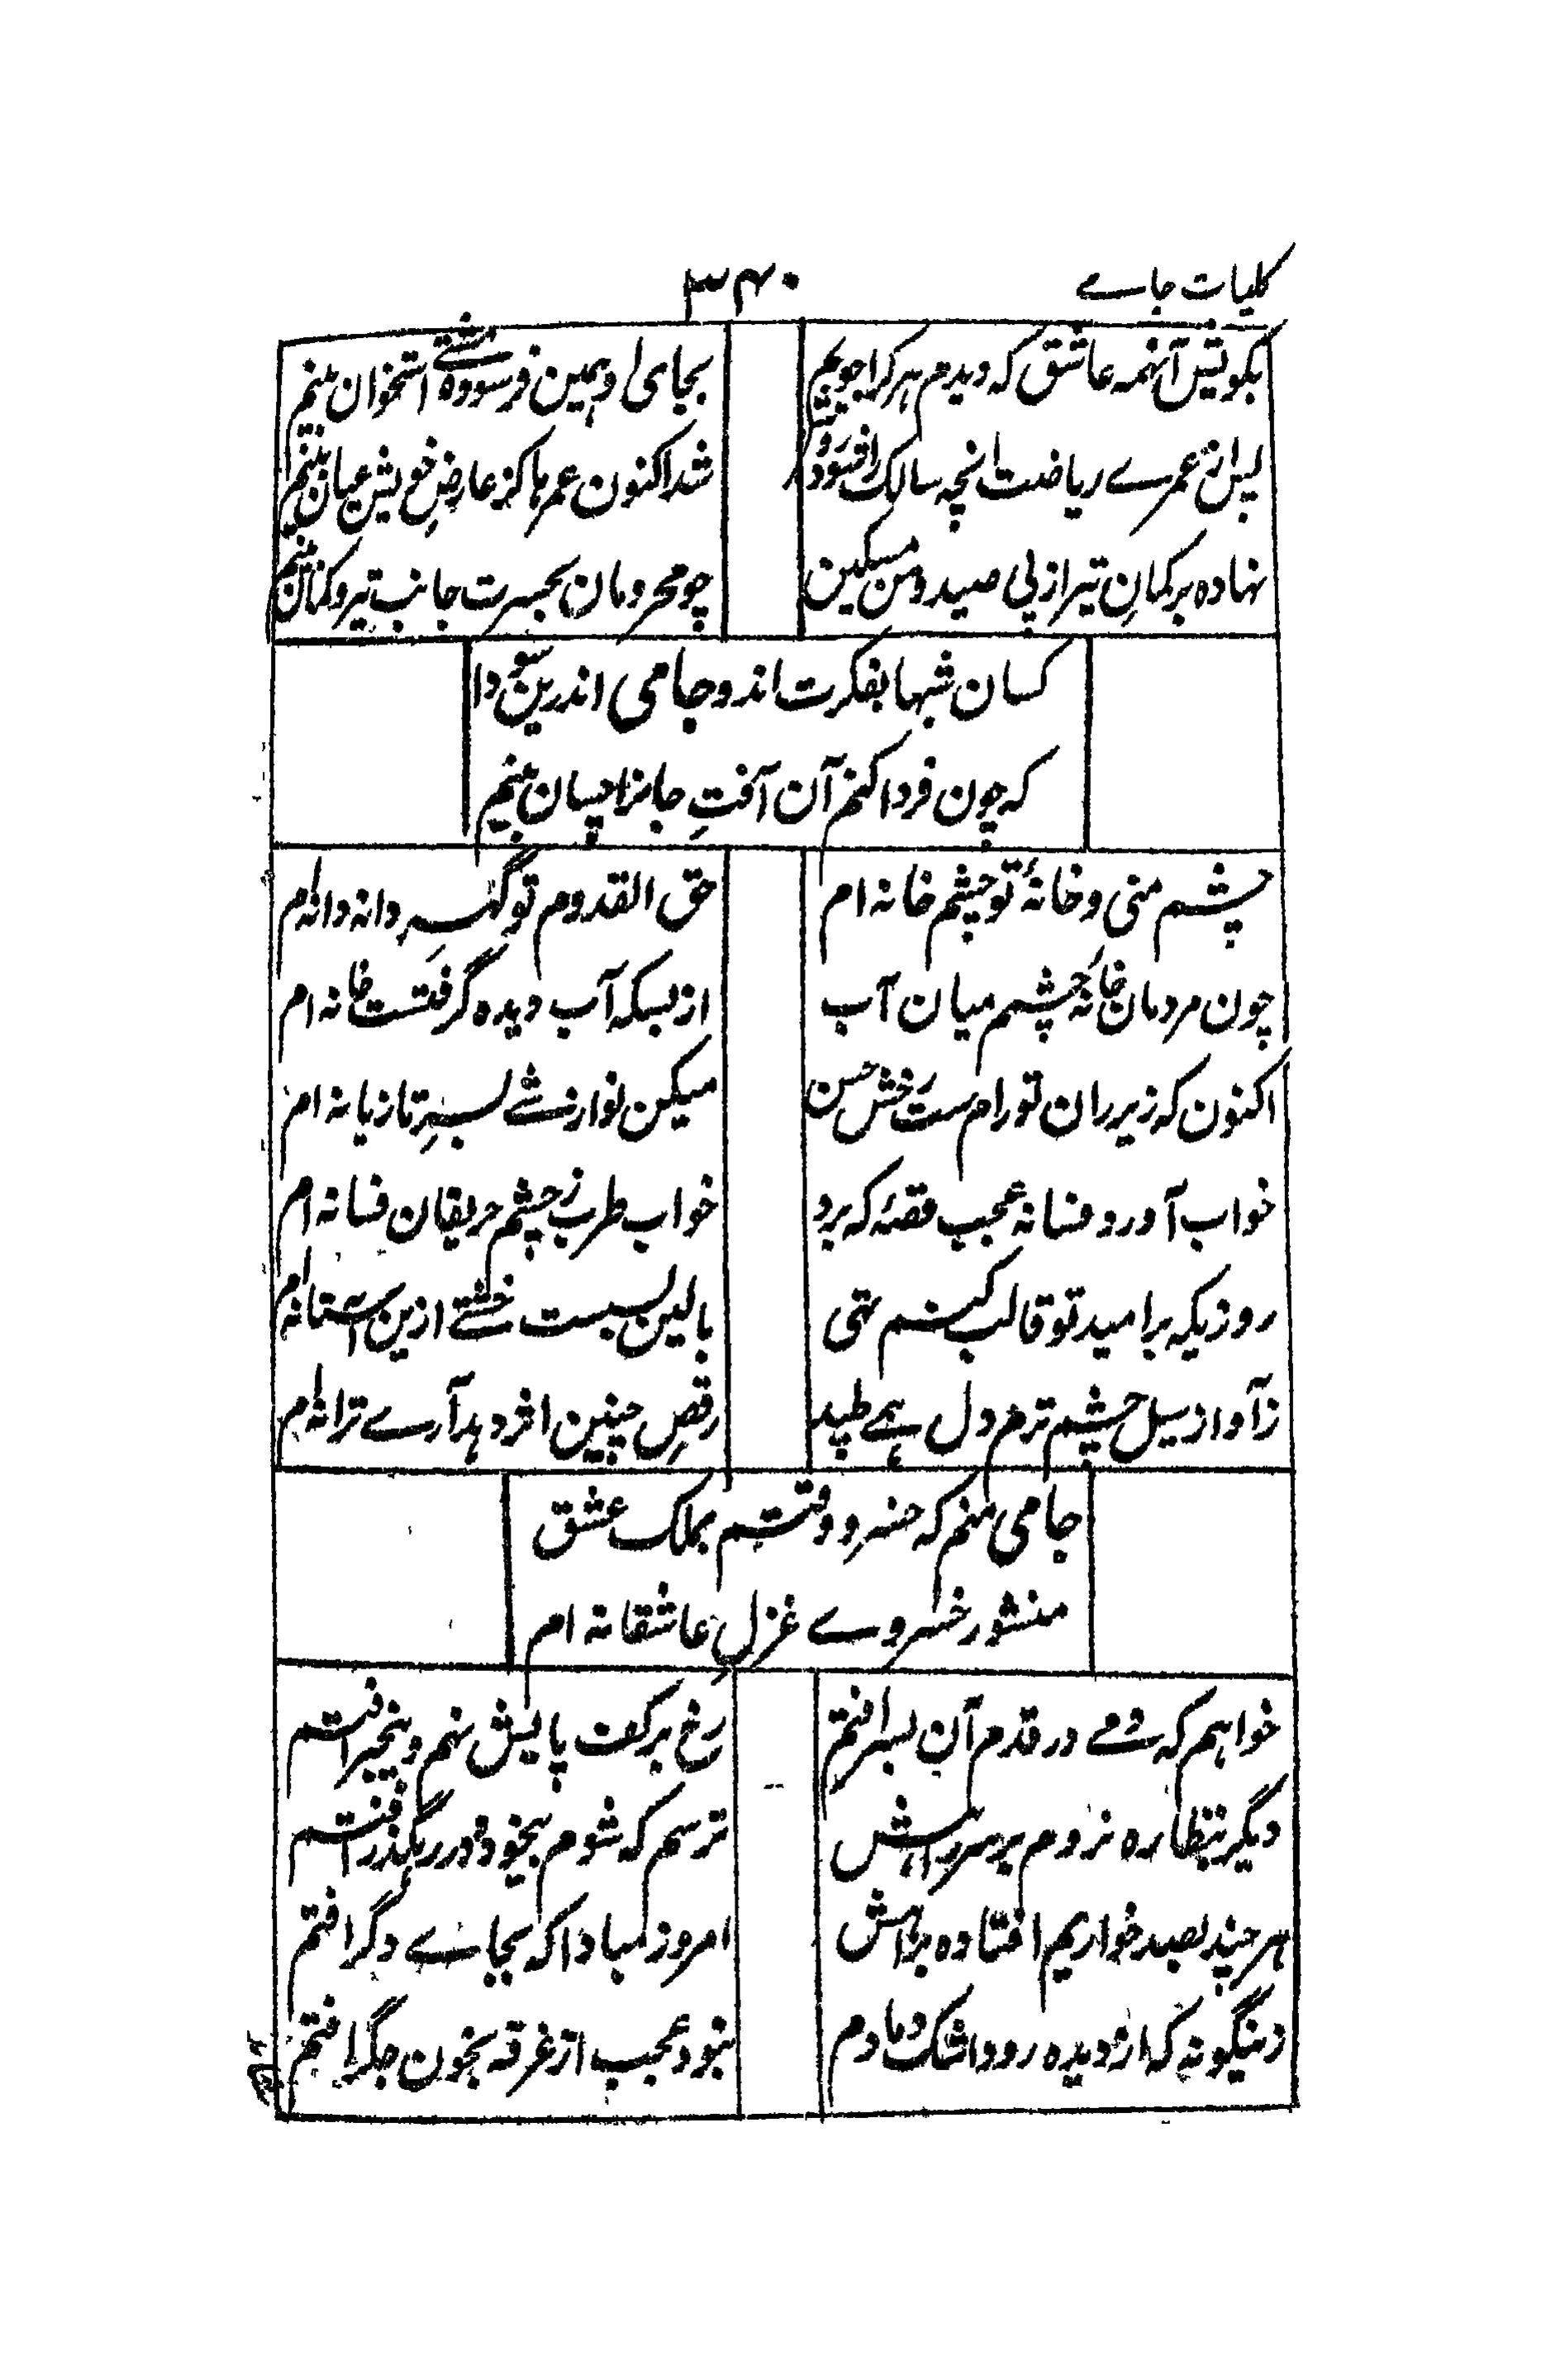 کلیات جامے
۳۴۰
بکویش آنہمہ عاشق کہ دیدم ہر کرا جویم
بجای او ہمین فرسودہ مشتے استخوان بینم
پس از عمرے ریاضت انچہ سالک را شود روشن
شد اکنون عمرہا کز عارضِ خویش عیان بینم
نہادہ بر کمانِ تیر از پی صید و من مسکین
چو محرومان بحسرت جانب تیر و کمان بینم
کسان شبہا بفکرت اند و جامی اندرین سودا
کہ چون فردا کنم آن آفتِ جانرا چسان بینم
چشم منی و خانۂ تو چشم خانہ ام
حق القدوم تو گہرِ دانہ دانہ ام
چون مردمان خانۂ چشم میان آب
از بسکہ آب دیدہ گرفتست خانہ ام
اکنون کہ زیر ران تو رام ست رخش حسن
میکن نوازشے بسرِ تازیانہ ام
خواب آورد فسانہ عجب قصۂ کہ برد
خواب طرب ز چشم حریفان فسانہ ام
روزیکہ بر امید تو قالب کنم تہی
بالین بسست خشتے ازین آستانہ ام
ز آواز سیل چشم ترم دل ہمے طپد
رقصِ چنین اثر دہد آرے ترانہ ام
جامی منم کہ خسرو وقتم بملک عشق
منشور خسروے غزلِ عاشقانہ ام
خواہم کہ دمے در قدم آن پسر افتم
رخ بر کف پایش نہم و بیخبر افتم
دیگر بنظارہ نروم بر سر راہش
ترسم کہ شوم بیخود و در رہگذر افتم
ہر چند بصد خواریم افتادہ براہش
امروز مبادا کہ بجاے دگر افتم
زینگونہ کہ از دیدہ رود اشک دمادم
نبود عجب ار غرقہ بخون جگر افتم